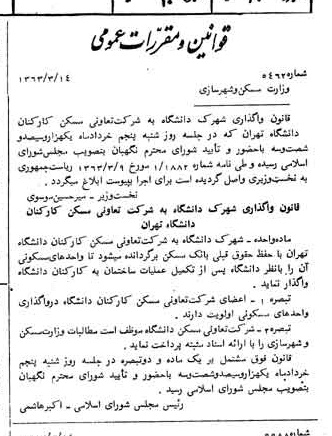 قوانین و مقررات عمومی
شماره ۵۴۶۲ ۱۳۶۳/۳/۱۴
وزارت مسکن و شهرسازی
قانون واگذاری شهرک دانشگاه به شرکت تعاونی مسکن کارکنان
دانشگاه تهران که در جلسه روز شنبه پنجم خردادماه یکهزار و سیصد و
شصت و سه با حضور و تأیید شورای محترم نگهبان بتصویب مجلس شورای
اسلامی رسیده و طی نامه شماره ۱/۱۸۸۲ مورخ ۱۳۶۳/۳/۹ ریاست جمهوری
به نخست وزیری واصل گردیده است برای اجرا بپیوست ابلاغ میگردد.
نخست وزیر - میرحسین موسوی
قانون واگذاری شهرک دانشگاه به شرکت تعاونی مسکن کارکنان
دانشگاه تهران
ماده واحده - شهرک دانشگاه به شرکت تعاونی مسکن کارکنان دانشگاه
تهران با حفظ حقوق قبلی بانک مسکن برگردانده میشود تا واحدهای مسکونی
آن را بانظر دانشگاه پس از تکمیل عملیات ساختمان به کارکنان دانشگاه
واگذار نماید.
تبصره ۱ - اعضای شرکت تعاونی مسکن کارکنان دانشگاه در واگذاری
واحدهای مسکونی اولویت دارند.
تبصره ۲ - شرکت تعاونی مسکن دانشگاه موظف است مطالبات وزارت مسکن
و شهرسازی را با ارائه اسناد مثبته پرداخت نماید.
قانون فوق مشتمل بر یک ماده و دو تبصره در جلسه روز شنبه پنجم
خردادماه یکهزار و سیصد و شصت و سه با حضور و تأیید شورای محترم نگهبان
بتصویب مجلس شورای اسلامی رسید.
رئیس مجلس شورای اسلامی - اکبر هاشمی